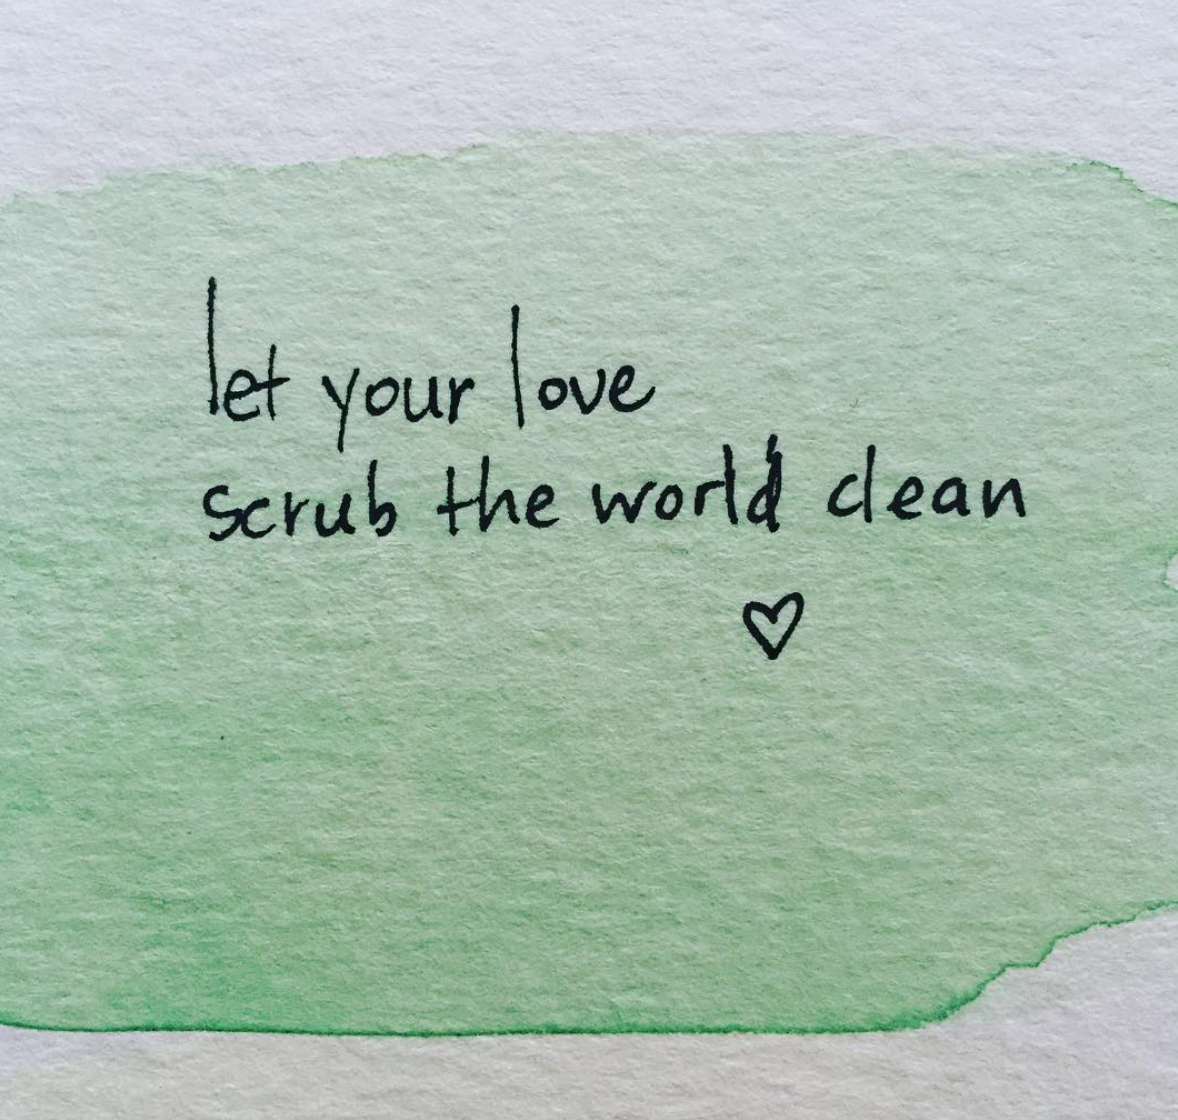 let your love
scrub the world clean
♡